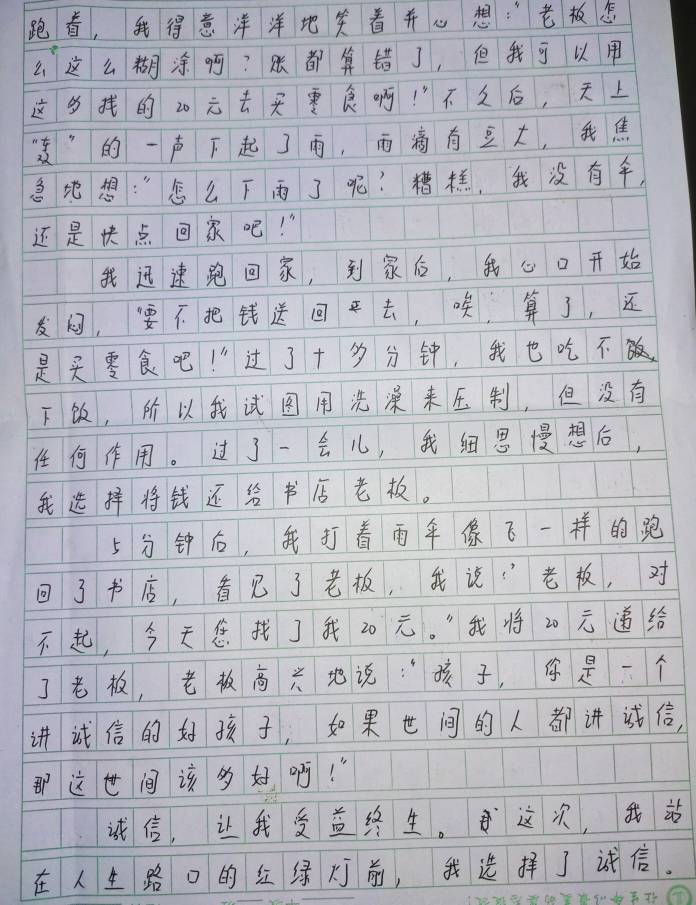 跑着，我得意洋洋地笑着并心想：“老板怎
么这么糊涂啊？账都算错了，但我可以用
这多找的20元去买零食啊！”不久后，天上
“轰”的一声下起了雨，雨滴有豆大，我焦
急地想：“怎么下雨了呢？糟糕，我没有伞，
还是快点回家吧！”
我迅速跑回家，到家后，我心口开始
发闷，“要不把钱送回去，唉，算了，还
是买零食吧！”过了十多分钟，我也吃不饭，
下饭，所以我试图用洗澡来压制，但没有
任何作用。过了一会儿，我细思慢想后，
我选择将钱还给书店老板。
5分钟后，我打着雨伞像飞一样的跑
回了书店，看见了老板，我说：“老板，对
不起，今天您找了我20元。”我将20元递给
了老板，老板高兴地说：“孩子，你是一个
讲诚信的好孩子，如果世间的人都讲诚信，
那这世间该多好啊！”
诚信，让我受益终生。这次，我站
在人生路口的红绿灯前，我选择了诚信。